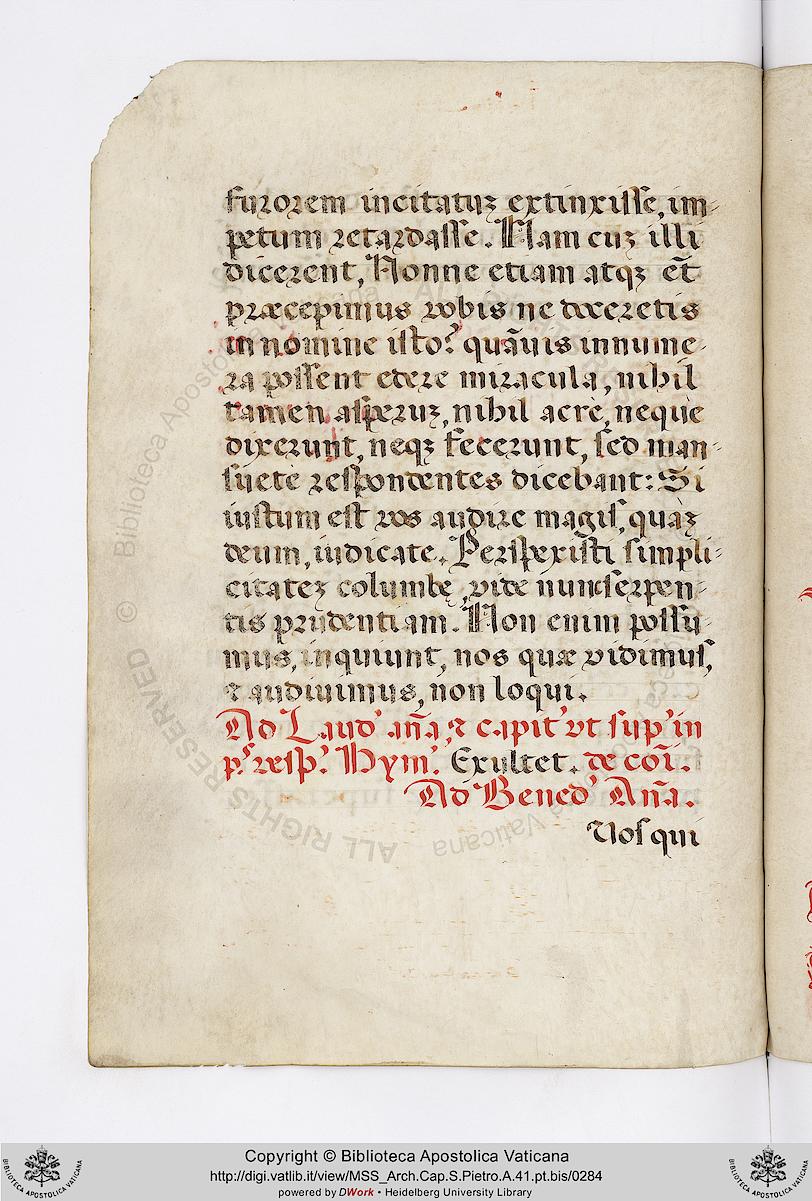 furorem incitatuȝ extinxisse, im-
petum retardasse. Nam cuȝ illi
dicerent, Nonne etiam atqȝ et̃
præcepimus vobis ne doceretis
in nomine isto? quãuis innume-
ra possent edere miracula, nihil
tamen asperuȝ, nihil acrè, neque
dixerunt, neqȝ fecerunt, sed man-
suetè respondentes dicebant: Si
iustum est vos audire magis, quàȝ
deum, iudicate. Perspexisti simpli-
citateȝ columbę, vide nunc serpen-
tis prudentiam. Non enim possu-
mus, inquiunt, nos quæ vidimus,
⁊ audiuimus, non loqui.
Ad Laud' añã, ⁊ capit' vt sup' in
p.º resp.' Hym.' Exultet. de coĩ.
Ad Bened' Añã.
Vos qui
Copyright © Biblioteca Apostolica Vaticana
http://digi.vatlib.it/view/MSS_Arch.Cap.S.Pietro.A.41.pt.bis/0284
powered by DWork • Heidelberg University Library